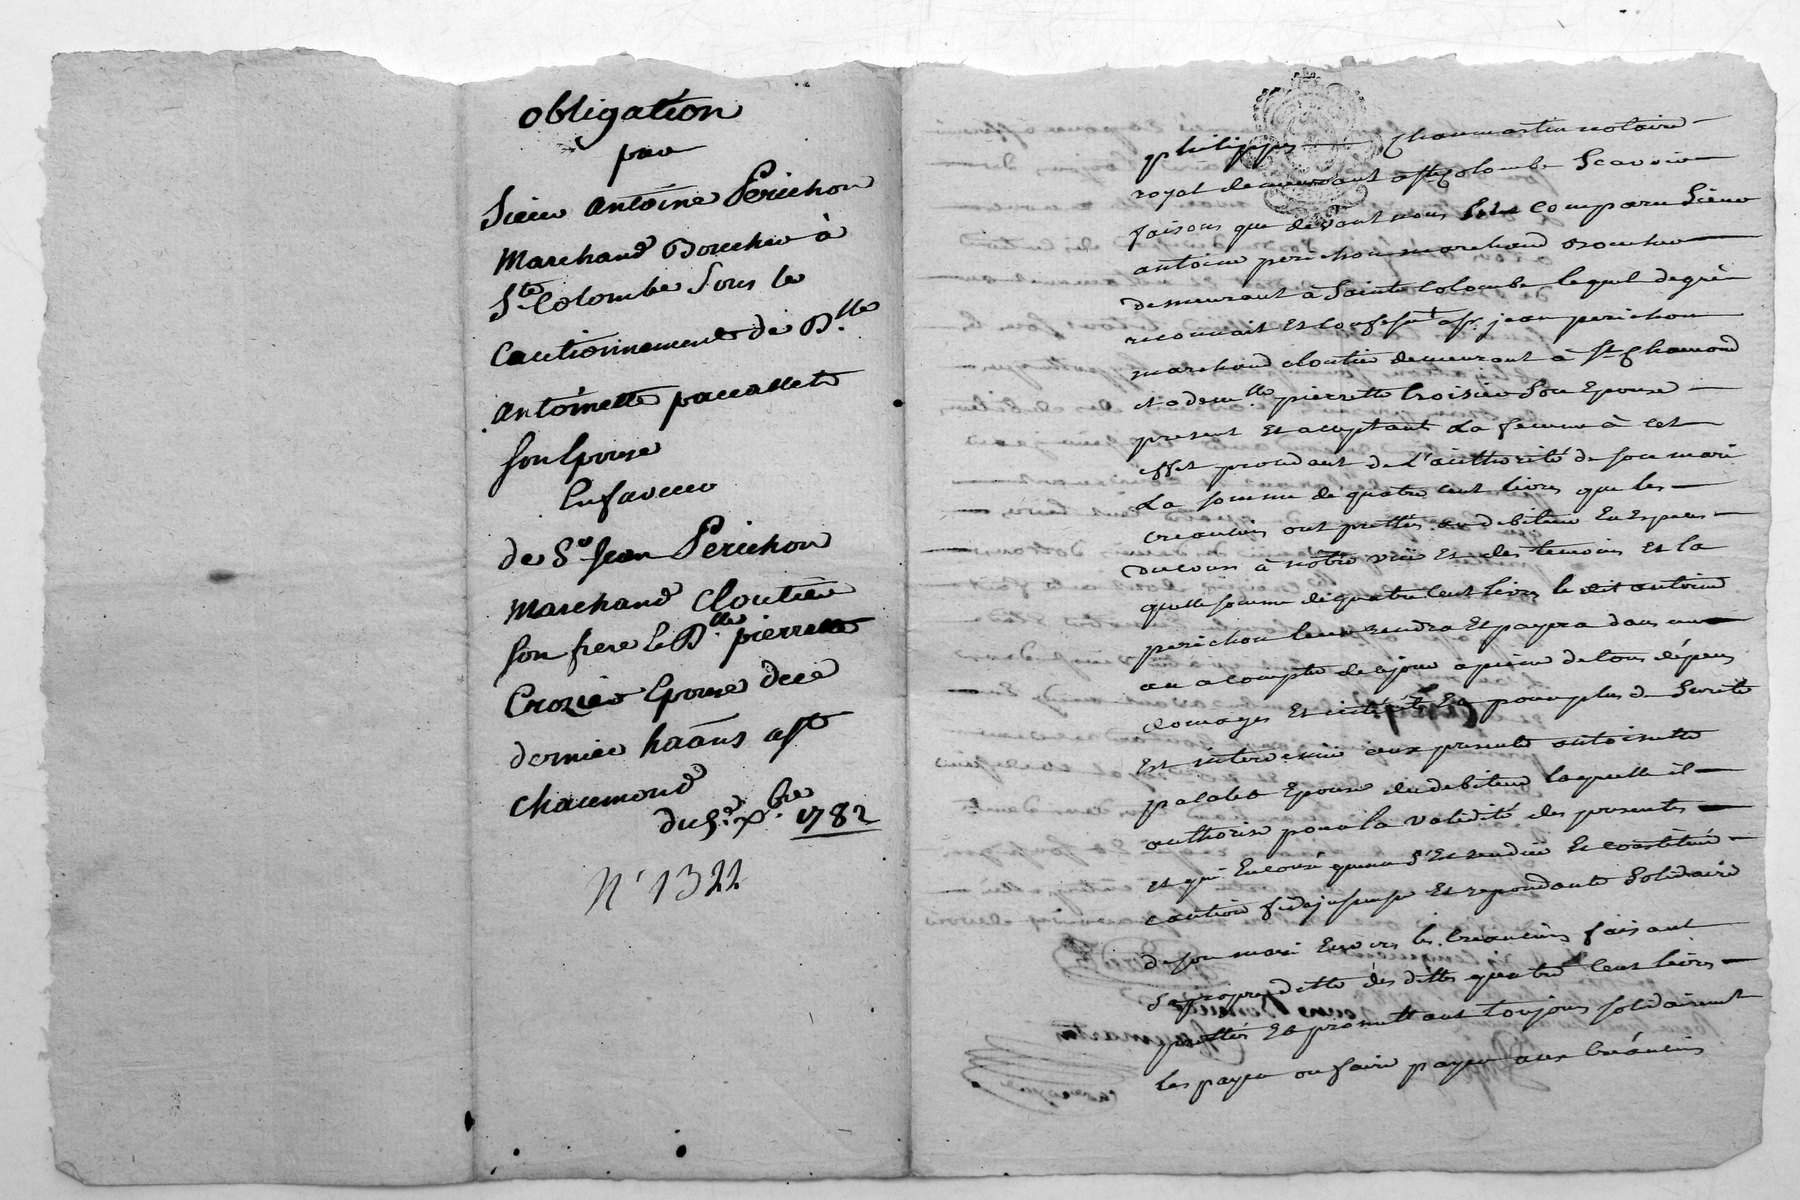 obligation
par
Sieur antoine Perichon
Marchand Boucher à
Ste Colombe Sous le
Cautionnement de Dlle
antoinette paccallet
son Epouse
En faveur
de Sr Jean Perichon
Marchand Cloutier
son frere & Dlle pierrette
Crozier Epouse de ce
dernier hāāns a St
chaumond
du 5e Xbre 1782
N° 1322
philippes Chaumartin notaire
royal demeurant a Ste Colombe Scavoir
faisons que devant nous Est comparu Sieur
antoine perichon marchand Boucher
demeurant à Sainte Colombe lequel de gré
reconnait et confesse a Sr jean perichon
marchand cloutier demeurant à St Chamond
et a demlle pierrette Croisier Son Epouse
present Et acceptant La femme à cet
effet procedant de L'authorité de son mari
La somme de quatre cent livres que les
creanciers ont prettés au debiteur En Especes
du cours à notre vuë Et des temoins Et la
quelle somme de quatre Cent livres le dit antoine
perichon leur rendra Et payera dans un
an a compter de ce jour a peine de tous dépens
domages Et interêts Et pour plus de Sureté
Est intervenuë aux presentes antoinette
palalet Epouse du debiteur laquelle il
authorise pour la validité des presentes
et qui En cette qualité S'Est renduë Et constituée
caution fidejusseuse Et repondante Solidaire
de son mari Envers les Creanciers faisant
sa propre dette des dittes quatre Cent livres
prettés Et promettant toujours solidairement
Les payer ou faire payer aux Créanciers